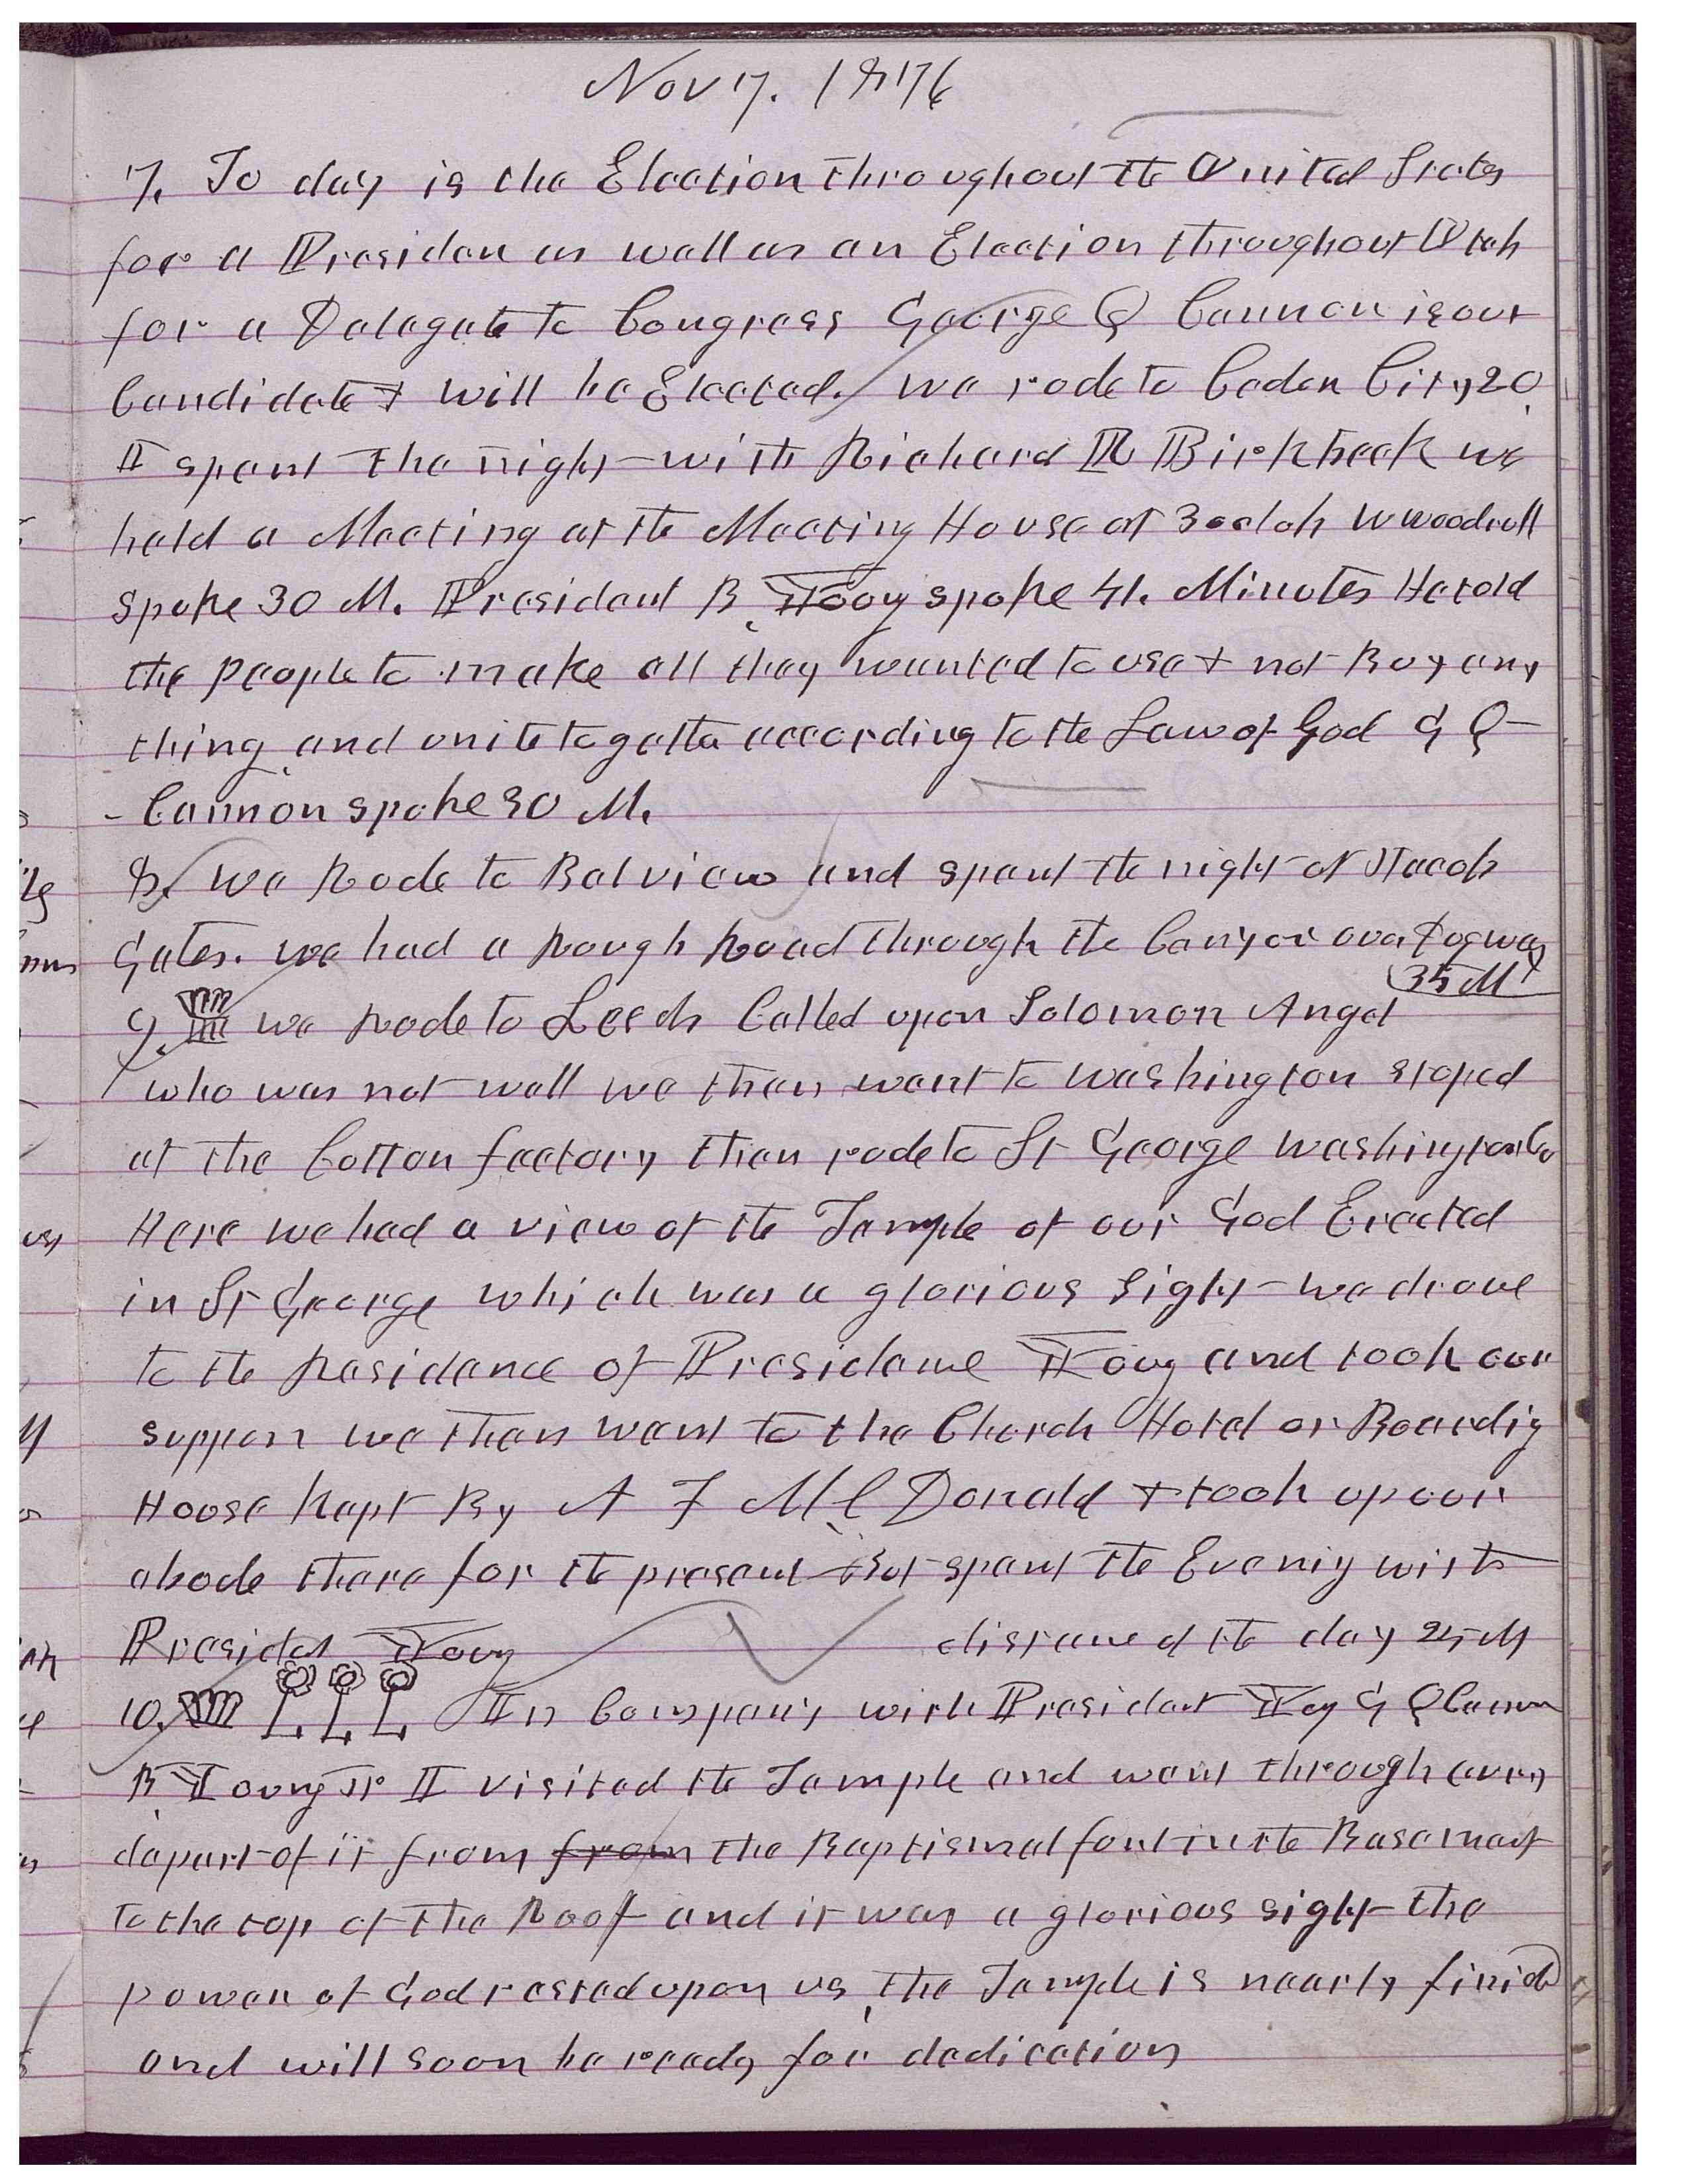 Nov 7. 1876
7. To day is the Election throughout the United States
for a Presiden as well as an Election throughout Utah
for a Delegate to Congress George Q Cannon is our
Candidate & will be Elected. we rode to Ceder City 20
I spent the night with Richard R Birkbeck we
held a Meeting at the Meeting House at 3 oclok W Woodruff
spoke 30 M. President B Young spoke 41. Minutes He told
the people to make all they wanted to use & not Buy any
thing and unite togetter according to the Law of God G Q
- Cannon spoke 30 M.
8. We Rode to Belview and spent the night at Jacob
Gates. we had a Rough Road through the Canyon over Dugway
35 M
9. we Rode to Leeds Called upon Solomon Angel
who was not well we then went to Washington stoped
at the Cotton factory then rode to St George Washington Co
Here we had a view of the Temple of our God Erected
in St George which was a glorious sight we drove
to the Residence of President Young and took our
supper we then went to the Church Hotel or Boardig
House kept By A F McDonald & took up our
abode there for the present But spent the Evenig with
Presidet Young distance of the day 25 M
10. In Company with President Young G Q Cannon
B Young Jr I visited the Temple and went through every
depart of it from from the Baptismal font in the Basement
to the top of the Roof and it was a glorious sight the
power of God rested upon us the Temple is nearly finid
and will soon be ready for dedication